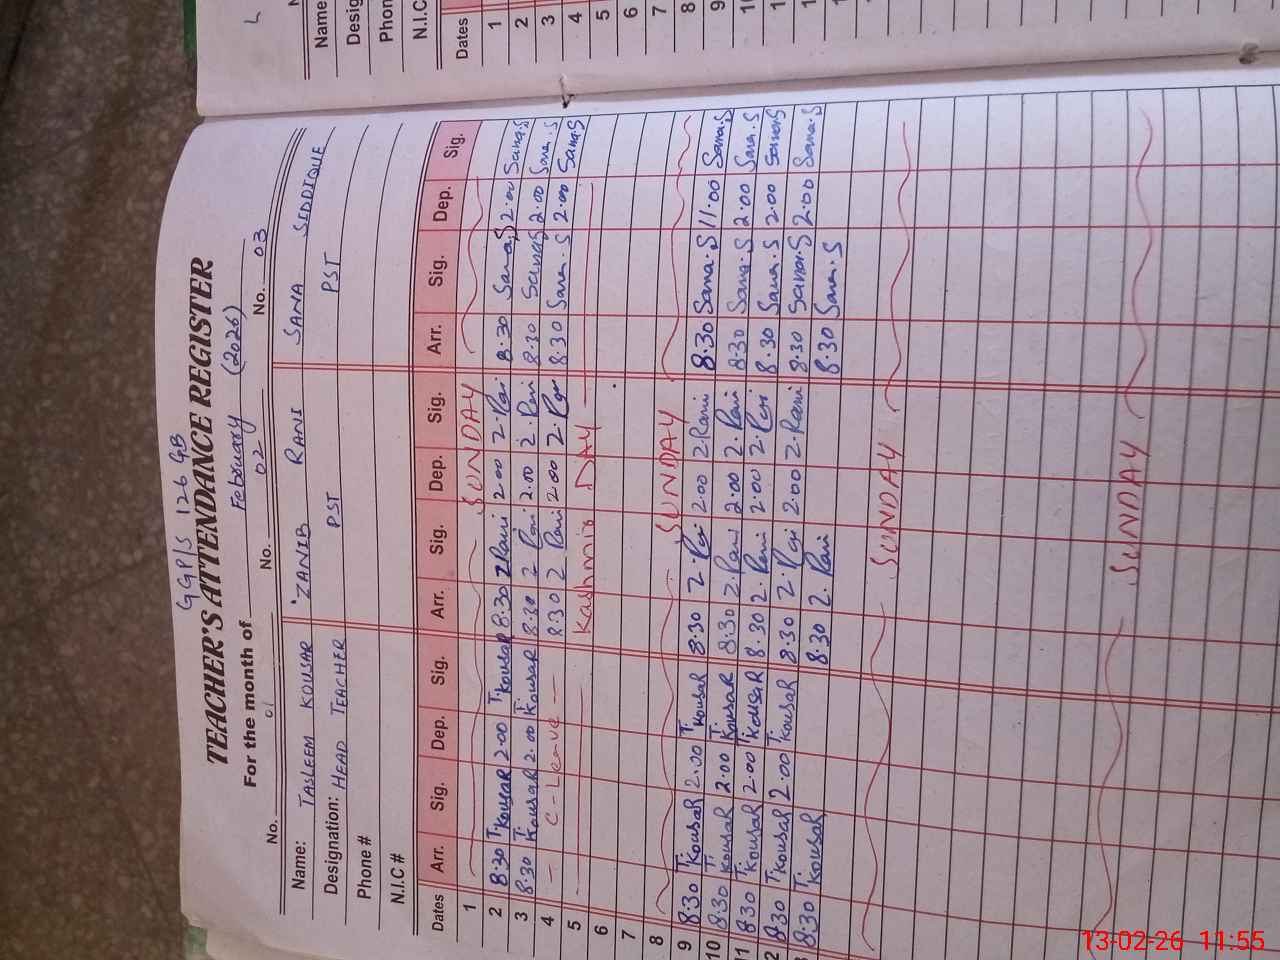 GGP/S 126 GB
TEACHER'S ATTENDANCE REGISTER
For the month of February (2026)
No. 01 No. 02 No. 03
Name: TALEEM KOUSAR ZANIB RANI SANA SIDDIQUE
Designation: HEAD TEACHER PST PST
Phone #
N.I.C #
Dates Arr. Sig. Dep. Sig. Arr. Sig. Dep. Sig. Arr. Sig. Dep. Sig.
1 SUNDAY
2 8.30 T.Kousar 2.00 T.Kousar 8.30 Z Rani 2.00 Z.Rani 8.30 Sana.S 2.00 Sana.S
3 8.30 T.Kousar 2.00 T.Kousar 8.30 Z Rani 2.00 Z.Rani 8.30 Sana.S 2.00 Sana.S
4 C-Leave 8.30 Z Rani 2.00 Z.Rani 8.30 Sana.S 2.00 Sana.S
5 Kashmir DAY
6
7
8 SUNDAY
9 8.30 T.Kousar 2.00 T.Kousar 8.30 Z.Rani 2.00 Z.Rani 8.30 Sana.S 11.00 Sana.S
10 8.30 T.Kousar 2.00 T.Kousar 8.30 Z.Rani 2.00 Z.Rani 8.30 Sana.S 2.00 Sana.S
11 8.30 T.Kousar 2.00 T.Kousar 8.30 Z.Rani 2.00 Z.Rani 8.30 Sana.S 2.00 Sana.S
2 8.30 T.Kousar 2.00 T.Kousar 8.30 Z.Rani 2.00 Z.Rani 8.30 Sana.S 2.00 Sana.S
8.30 T.Kousar 8.30 Z.Rani 8.30 Sana.S
SUNDAY
SUNDAY
Name
Desig
Phon
N.I.C
Dates
1
2
3
4
5
6
7
8
9
1
1
1
1
13-02-26 11:55